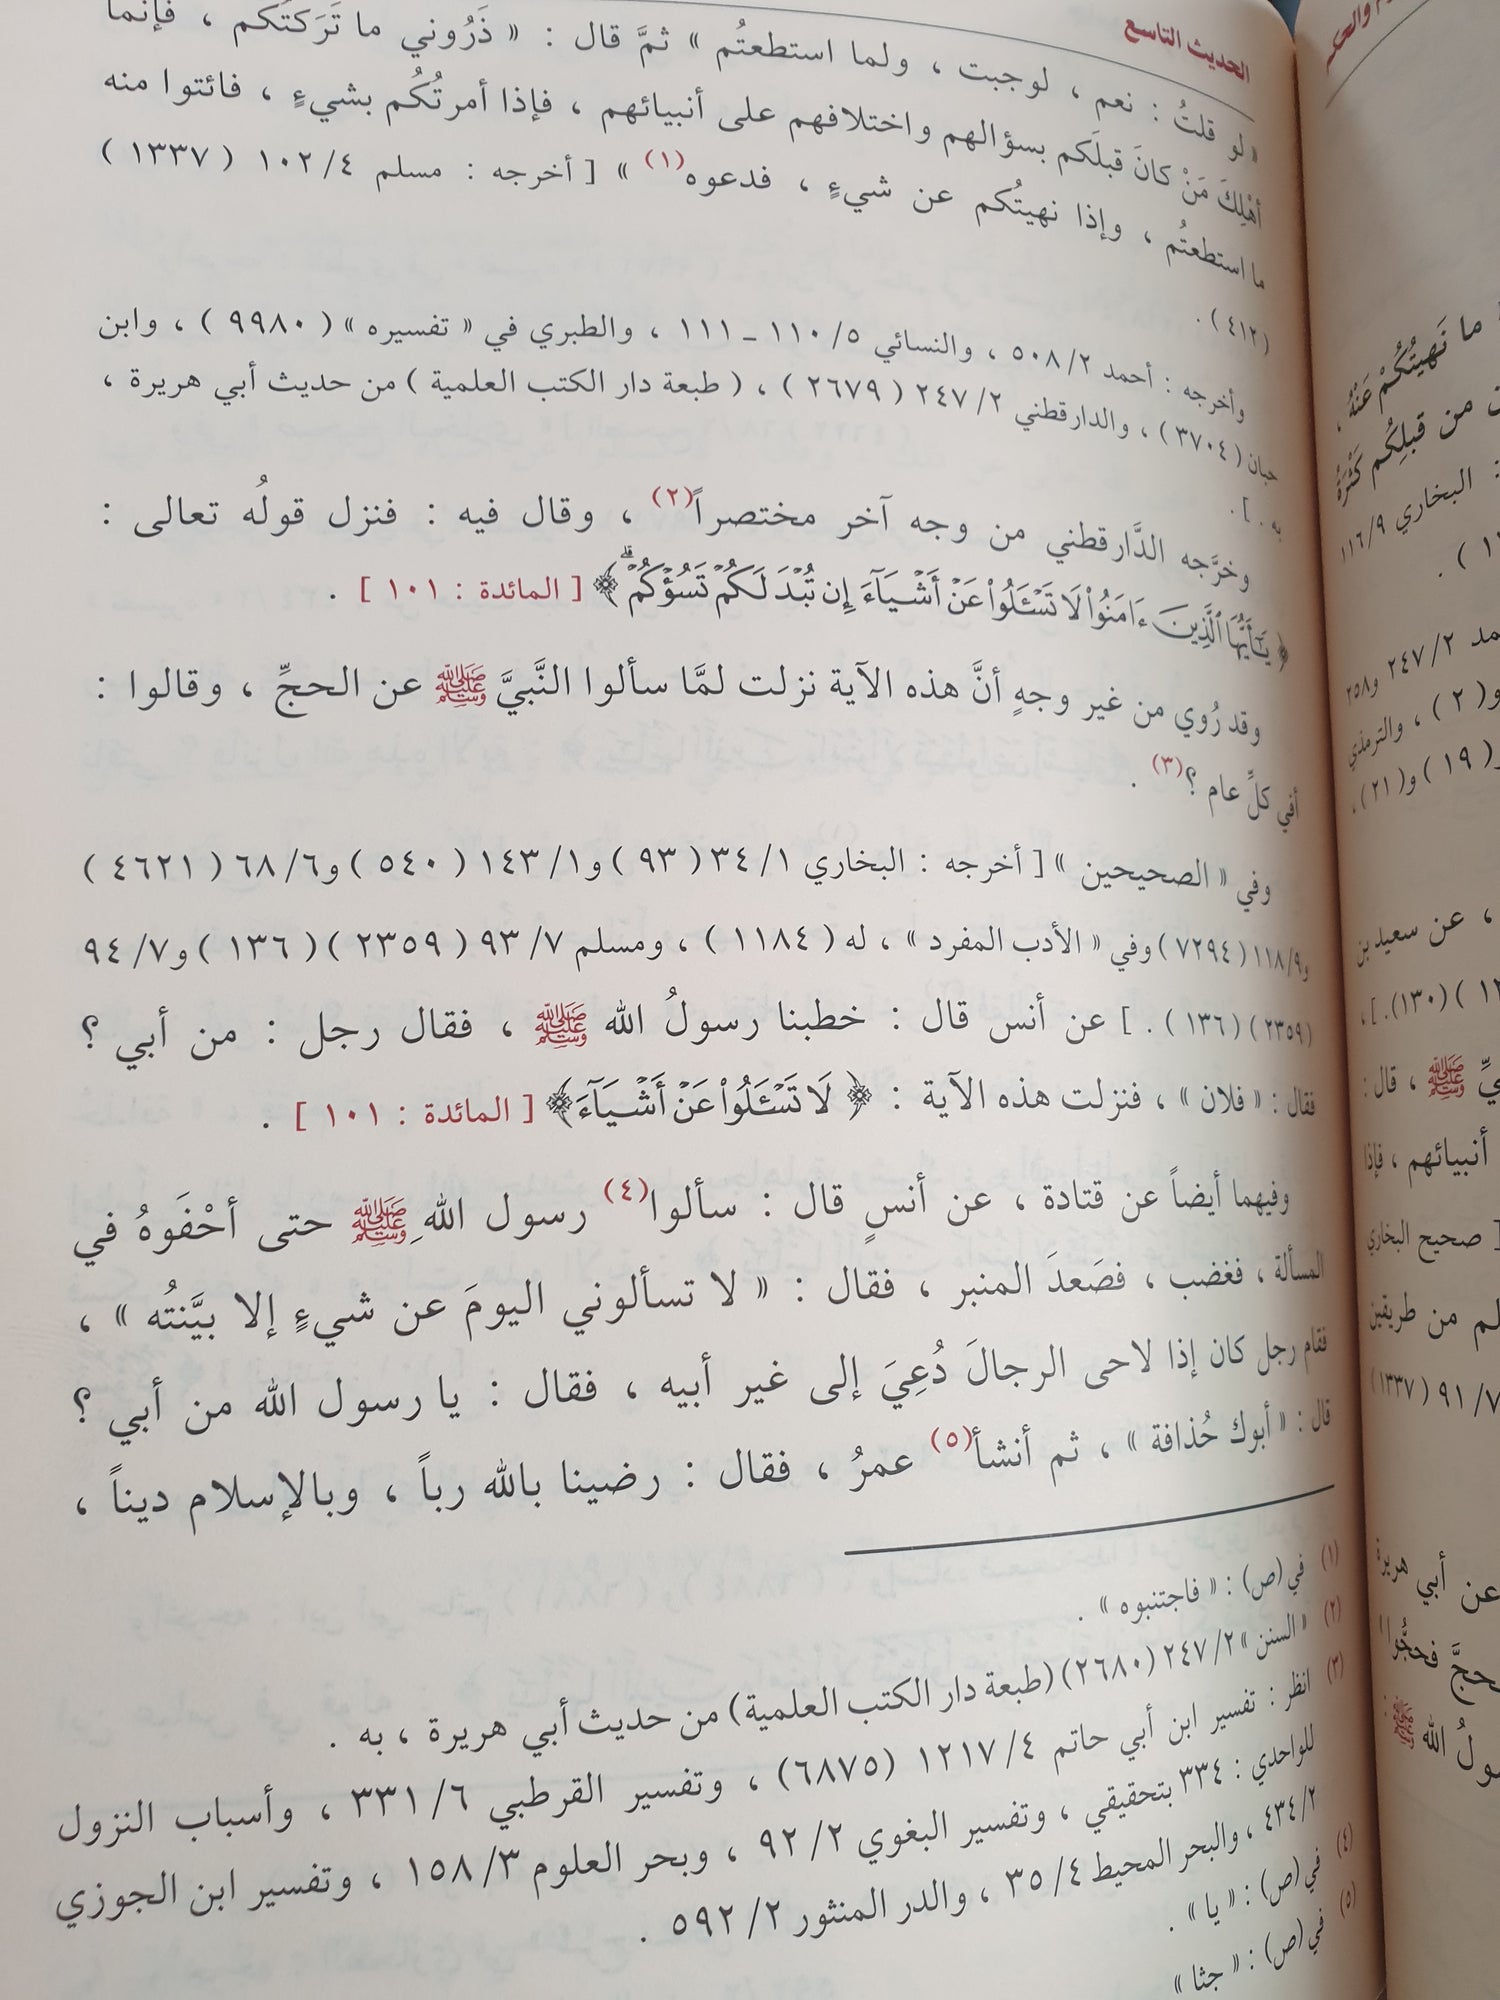 الحديث التاسع
« لو قلتُ : نعم ، لوجبت ، ولما استطعتُم » ثمَّ قال : « ذَرُوني ما تَرَكتُكم ، فإنما
أهْلِكَ مَنْ كانَ قبلَكم بسؤالهم واختلافهم على أنبيائهم ، فإذا أمرتُكُم بشيءٍ ، فائتوا منه
ما استطعتُم ، وإذا نهيتُكم عن شيءٍ ، فدعوه(١) » [ أخرجه : مسلم ٤/ ١٠٢ ( ١٣٣٧ )
( ٤١٢ ) .
وأخرجه : أحمد ٢/ ٥٠٨ ، والنسائي ٥/ ١١٠ ـ ١١١ ، والطبري في « تفسيره » ( ٩٩٨٠ ) ، وابن
حبان ( ٣٧٠٤ ) ، والدارقطني ٢/ ٢٤٧ ( ٢٦٧٩ ) ، ( طبعة دار الكتب العلمية ) من حديث أبي هريرة ،
به . ] .
وخرَّجه الدَّارقطني من وجه آخر مختصراً(٢) ، وقال فيه : فنزل قولُه تعالى :
﴿ يَٰٓأَيُّهَا ٱلَّذِينَ ءَامَنُوا۟ لَا تَسْـَٔلُوا۟ عَنْ أَشْيَآءَ إِن تُبْدَ لَكُمْ تَسُؤْكُمْ ۗ﴾ [ المائدة : ١٠١ ] .
وقد رُوي من غير وجهٍ أنَّ هذه الآية نزلت لمَّا سألوا النَّبيَّ ﷺ عن الحجِّ ، وقالوا :
أفي كلِّ عام ؟(٣) .
وفي « الصحيحين » [ أخرجه : البخاري ١/ ٣٤ ( ٩٣ ) و١/ ١٤٣ ( ٥٤٠ ) و٦/ ٦٨ ( ٤٦٢١ )
و٩/ ١١٨ ( ٧٢٩٤ ) وفي « الأدب المفرد » ، له ( ١١٨٤ ) ، ومسلم ٧/ ٩٣ ( ٢٣٥٩ ) ( ١٣٦ ) و٧/ ٩٤
( ٢٣٥٩ ) ( ١٣٦ ) . ] عن أنس قال : خطبنا رسولُ الله ﷺ ، فقال رجل : من أبي ؟
فقال : « فلان » ، فنزلت هذه الآية : ﴿ لَا تَسْـَٔلُوا۟ عَنْ أَشْيَآءَ ﴾ [ المائدة : ١٠١ ] .
وفيهما أيضاً عن قتادة ، عن أنسٍ قال : سألوا(٤) رسول اللهِ ﷺ حتى أحْفَوهُ في
المسألة ، فغضب ، فصَعدَ المنبر ، فقال : « لا تسألوني اليومَ عن شيءٍ إلا بيَّنتُه » ،
فقام رجل كان إذا لاحى الرجالَ دُعِيَ إلى غير أبيه ، فقال : يا رسول الله من أبي ؟
قال : « أبوك حُذافة » ، ثم أنشأ(٥) عمرُ ، فقال : رضينا بالله رباً ، وبالإسلام ديناً ،
(١) في (ص) : « فاجتنبوه » .
(٢) « السنن » ٢/ ٢٤٧ (٢٦٨٠) (طبعة دار الكتب العلمية) من حديث أبي هريرة ، به .
(٣) انظر : تفسير ابن أبي حاتم ٤/ ١٢١٧ (٦٨٧٥) ، وتفسير القرطبي ٦/ ٣٣١ ، وأسباب النزول
للواحدي : ٣٣٤ بتحقيقي ، وتفسير البغوي ٢/ ٩٢ ، وبحر العلوم ٣/ ١٥٨ ، وتفسير ابن الجوزي
٢/ ٤٣٤ ، والبحر المحيط ٤/ ٣٥ ، والدر المنثور ٢/ ٥٩٢ .
(٤) في (ص) : « يا » .
(٥) في (ص) : « جثا »
والحكم
ما نَهيتُكُمْ عَنْهُ ،
من قبلِكُم كَثْرَةُ
: البخاري ٩/ ١١٦
٢/ ٢٤٧ و٢٥٨
و( ٢ ) ، والترمذي
( ١٩ ) و( ٢١ ) ،
، عن سعيد بن
( ١٣٠ ) . ] ،
ﷺ ، قال :
أنبيائهم ، فإذا
[ صحيح البخاري
من طريقين
٧/ ٩١ ( ١٣٣٧ )
عن أبي هريرة
فحجُّوا
الله ﷺ :